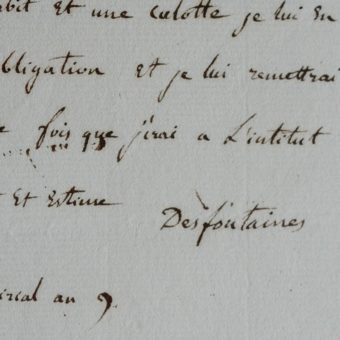 bit et une culotte je lui en
obligation et je lui remettrai
fois que j'irai a L'intitut
et Estime
Desfontaines
réal an 9